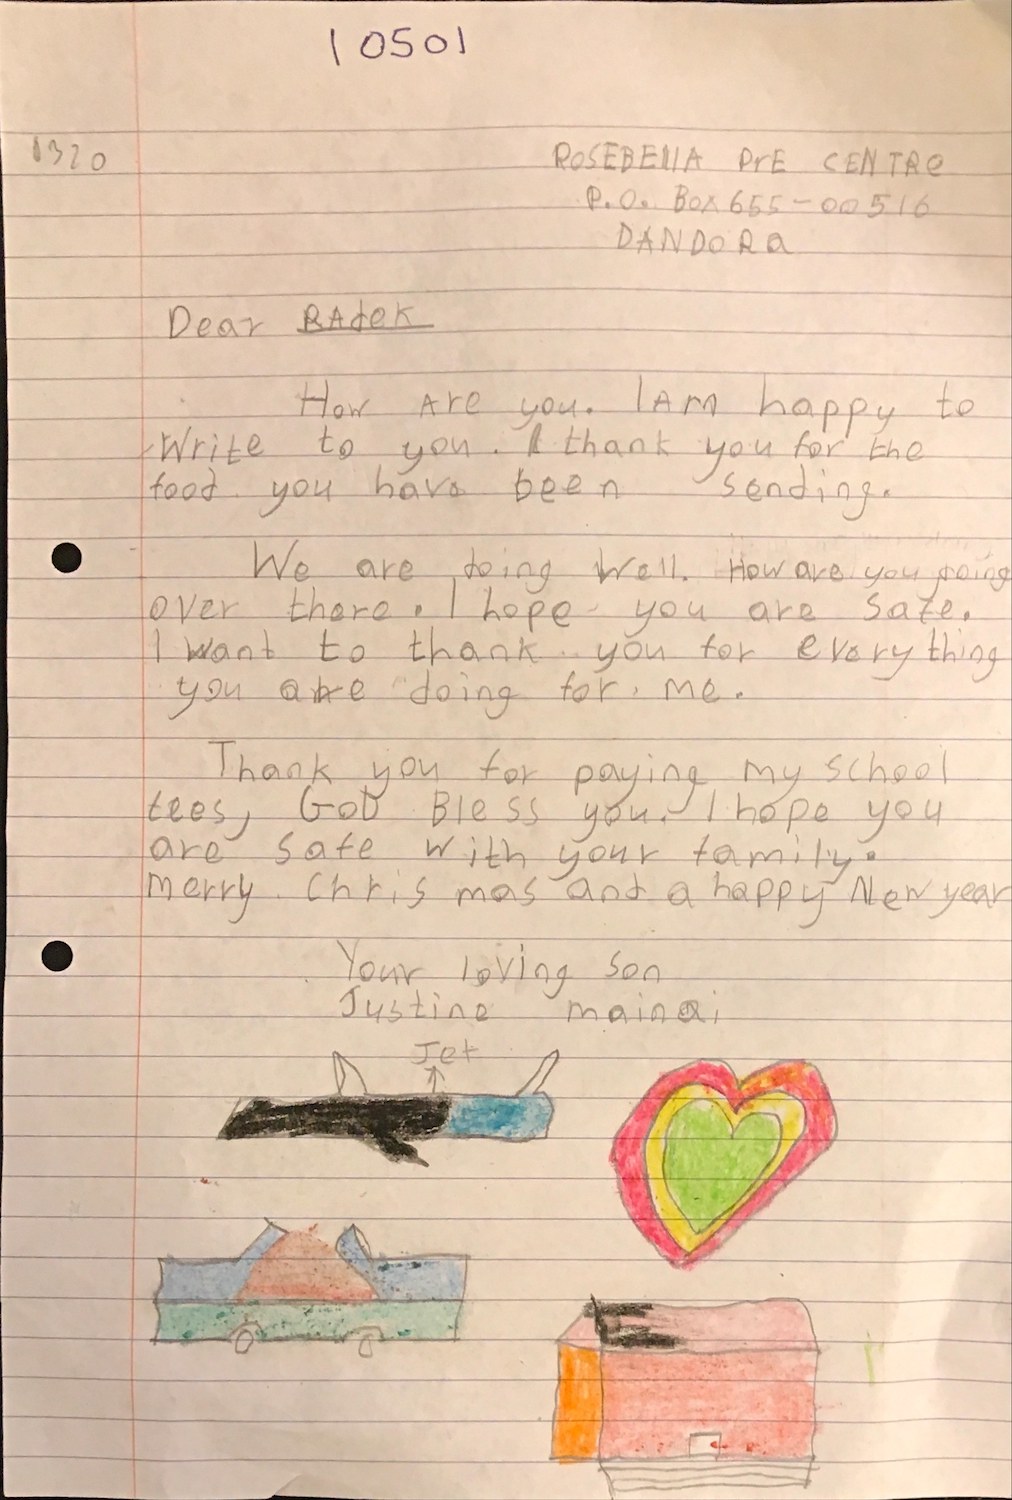 10501
1320
ROSEBELLA PrE CENTRe
P.O. Box 655-00516
DANDORa
Dear RAdeK
How Are you. I Am happy to
Write to you. I thank you for the
food you have been sending.
We are doing Well. How are you doing
over there. I hope you are safe.
I want to thank you for everything
you are doing for me.
Thank you for paying my school
fees, GoD Bless you. I hope you
are safe with your family.
Merry Chris mas and a happy New year
Your loving son
Justine mainai
Jet